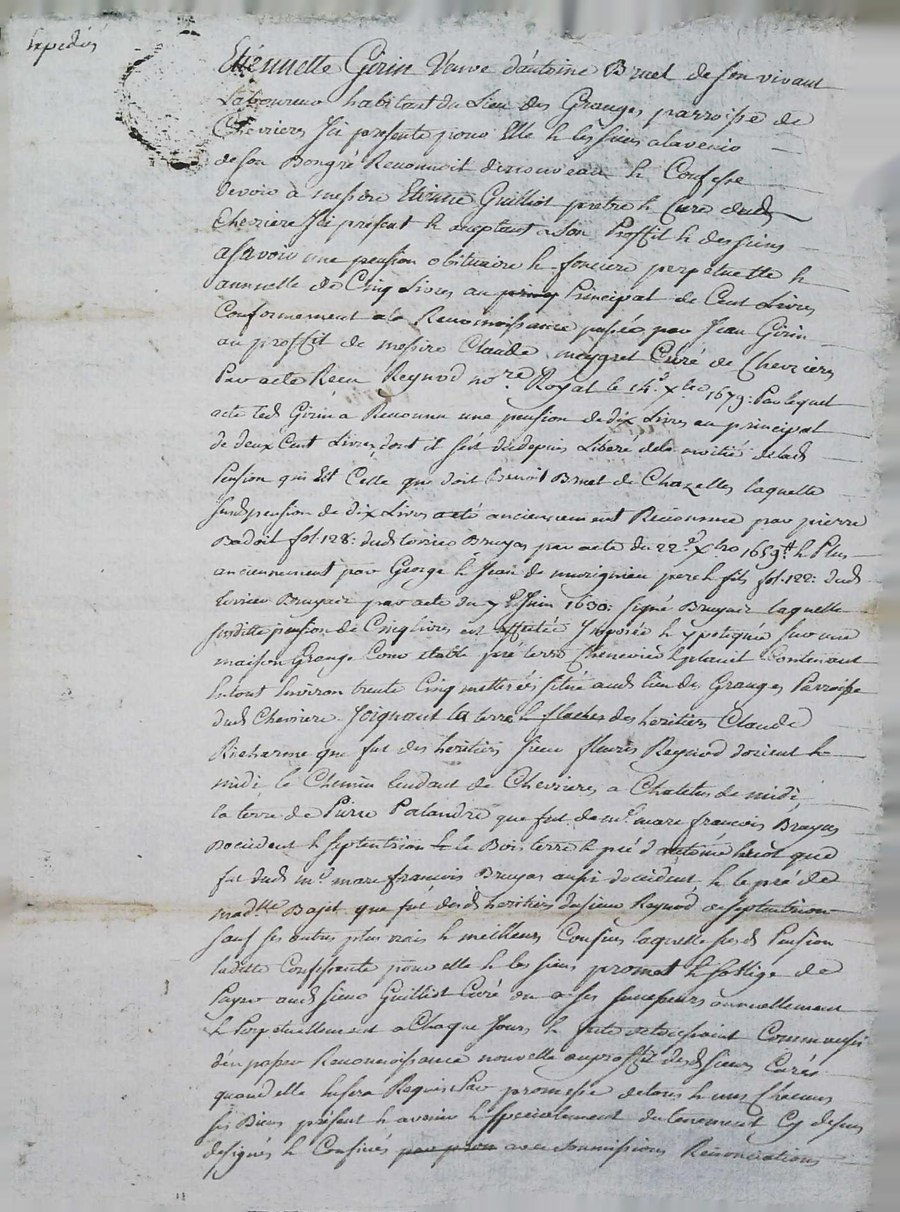 Expediée
Etiennette Girin Veuve d'antoine Bruel de son vivant
Laboureur habitant du Lieu des Granges parroisse de
Chevrieres Icy presente pour Elle & les siens alavenir
de son Bongré Reconnoit denouveau & Confesse
devoir à messire Etienne Guilliot pretre & Curé dud
Chevriere Ici présent & acceptant a son Proffit & des siens
asavoir une pension obituaire & fonciere perpetuelle &
annuelle de Cinq Livres au Principal de Cent Livres
Conformement ala Reconnoissance passée par Jean Girin
au proffit de messire Claude maigret Curé de Chevrieres
Par acte Recu Reynod no.re Royal le 14.e Xbre 1679: Par lequel
acte led Girin a Reconnu une pension de dix Livres au principal
de deux Cent Livres, dont il s'est du depuis Libéré dela moitié delad
Pension qui Est Celle que doit Benoit Bruel de Chazelles laquelle
susd pension de dix Livres a eté anciennement Reconnue par pierre
Badoit fol. 128: dud terrier Bruyas par acte du 22.e Xbre 1659 & Plus
anciennement par George & Jean de murigneu pere & fils fol. 122: dud
terrier Bruyas par acte du 7.e Juin 1630: signé Bruyas laquelle
susditte pension de Cinq livres est affectée Imposée & ypotequée sur une
maison Grange Cour etable pré terre Chenevier & planit Contenant
le tout Environ trente Cinq metterées situé aud lieu des Granges Parroisse
dud Chevriere Joignant la terre & flaches des heritiers Claude
Richarme que fut des heritiers sieur fleuris Reynod dorient &
midi, le Chemin tendant de Chevrieres a Chatelus de midi
la terre de Pierre Palandre que fut de m.e marc francois Bruyas
doccident & septentrion & le Bois terre & pré d'antoine heriot que
fut dud m.e marc francois Bruyas aussi doccident & le pré de
mad.lle Bajet que fut desd heritiers du sieur Reynod de septentrion
sauf ses autres plus vrais & meilleurs Confins laquelle susd Pension
laditte Confessante pour elle & les siens promet & soblige de
Payer aud sieur Guilliot Curé ou a ses successeurs annuellement
& Perpetuellement a Chaque Jour & feste de toussaint Comm'aussi
d'en passer Reconnoissance nouvelle au proffit desd sieurs Curés
quand elle en sera Requise Par promesse de tous & uns Chacuns
ses Biens présent & avenir & specialement du tenement Cy dessus
designés & Confinés avec soumissions Renonciations